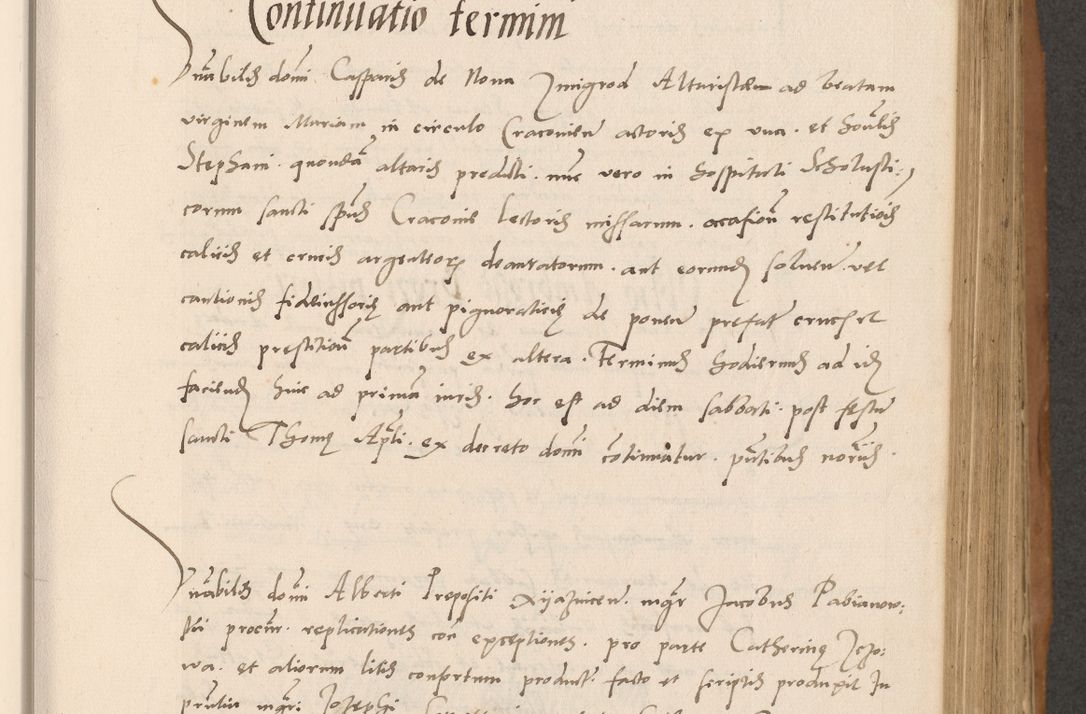 Continuatio termini
Vnabilis domi Casparis de Nova Zmigrod Altaristae ad beatam
virginem Mariam in circulo Cracovien actoris ex vna. et honblis
Stephani. quondam altaris predicti. nunc vero in hospitali Scholasti:
corum sancti spus Cracovie lectoris missarum. occasione restitutiois
calicis et crucis argenteorum deauratorum. aut eorundem soluen. vel
cautionis fideiussoris aut pignoraticis de ponen prefate crucis et
calicis prestitiom partibus ex altera. Terminus hodiernus ad id
faciend huic ad primam iuris. hoc est ad diem sabbati. post festum
sancti Thome Apli. ex decreto domi continuatur. pntibus norijs.
Vnabilis domi Alberti Prepositi Xijaznicen. mgr Jacobus Pabianow:
ski procur. replicationes coe exceptiones. pro parte Catherine
wa. et aliorum litis consortum product. facto et scriptis produxit In
pntia mgri Josephi